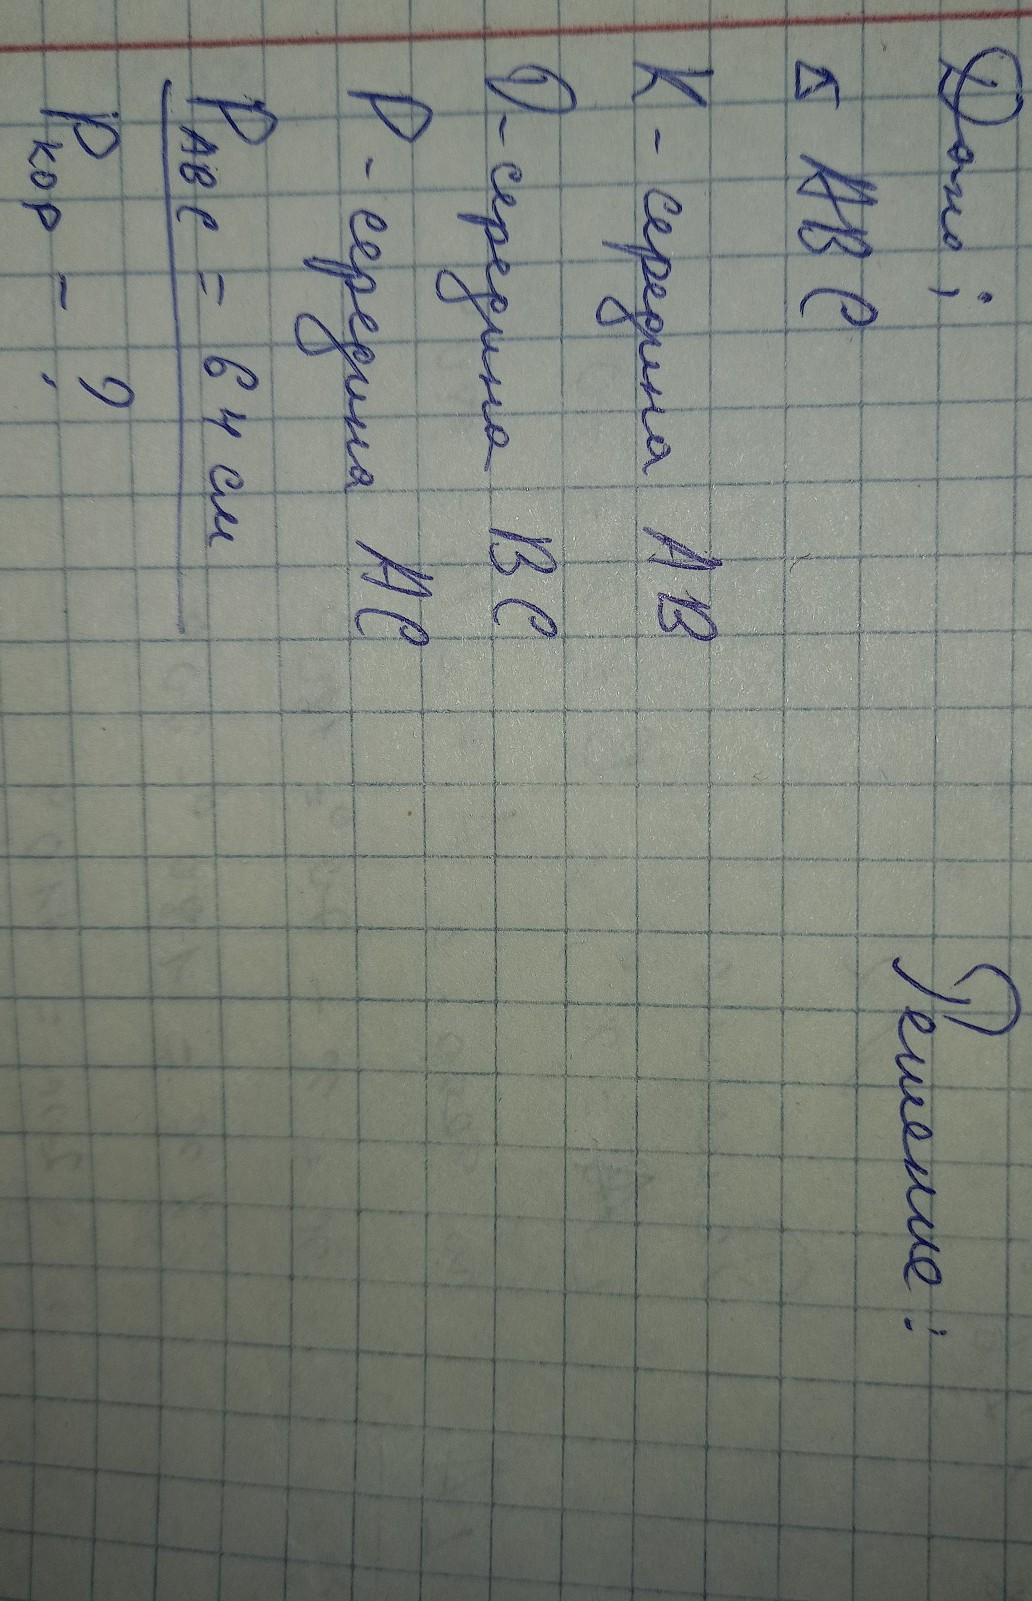 Дано:
Δ ABC
K - середина AB
O - середина BC
P - середина AC
P ABC = 64 см
P KOP - ?
Решение: